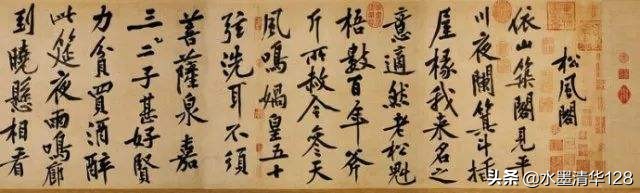 松風閣
依山築閣見平
川夜闌箕斗插
屋椽我來名之
意適然老松魁
梧數百年斧
斤所赦今參天
風鳴媧皇五十
弦洗耳不須
菩薩泉嘉
三二子甚好賢
力貧買酒醉
此筵夜雨鳴廊
到曉懸相看
头条 @水墨清华128